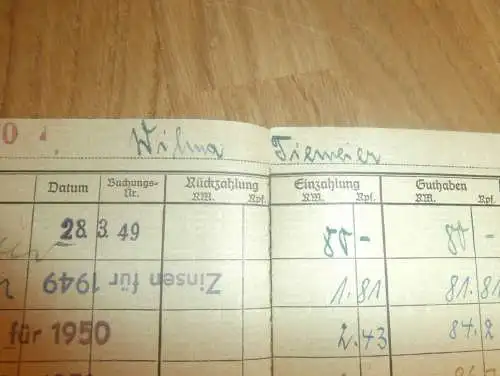 Wilma Tiemeier
Datum Buchungs-Nr. Rückzahlung RM. Rpf. Einzahlung RM. Rpf. Guthaben RM. Rpf.
28.3.49 80 - 80 -
Zinsen für 1949 1.81 81.81
für 1950 2.43 84.2